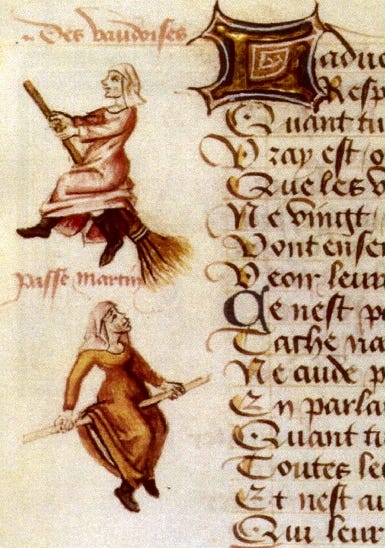 Des vaudoises
adue
Resp
Quant tu
Vray est o
Que les v
Ne vingt
Vont ense
passe martin
Veoir leur
Ce nest p
Tache na
Ne aude p
En parla
Quant tu
Toutes le
Et nest au
Qui leur